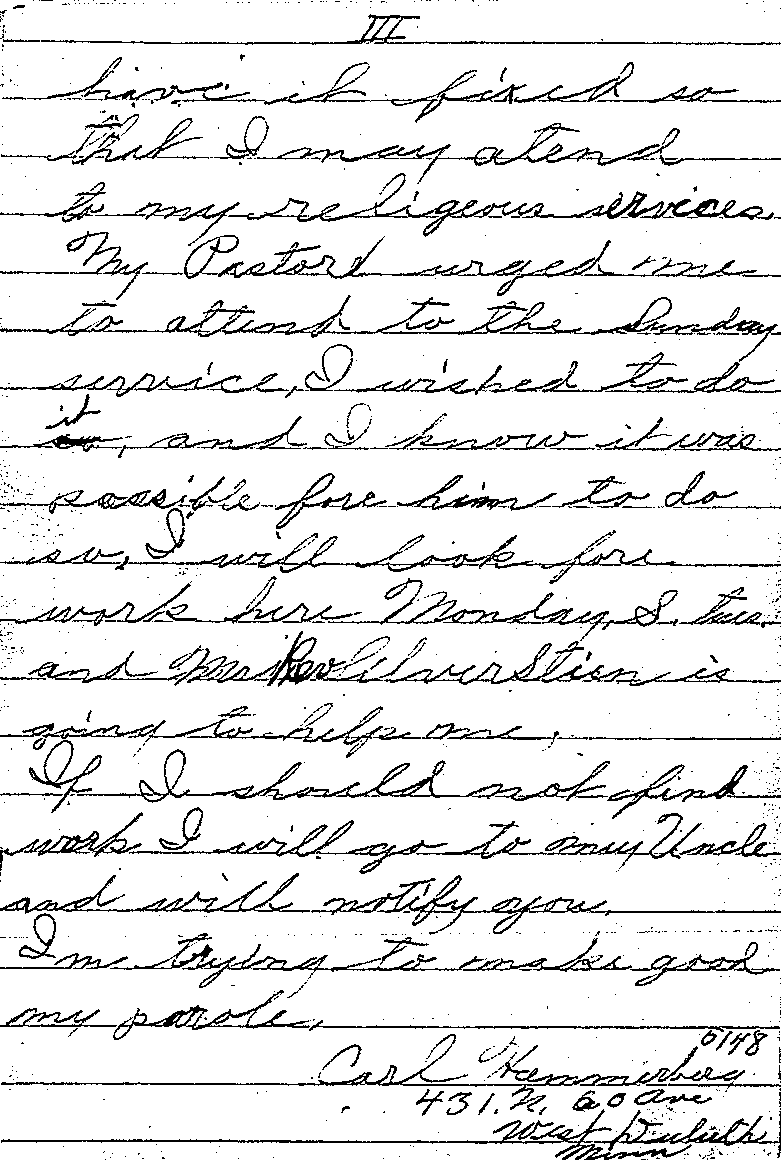 III
have it fixed so
that I may atend
to my religeous services.
My Pastord urged me
to attend to the Sunday
service, I wished to do
it, and I know it was
possible fore him to do
so, I will look fore
work here Monday, S. tues.
and Mr Rev SilverStien is
going to help me,
If I should not find
work I will go to my Uncle
and will notify you.
Im trying to make good
my parole,
5148
Carl Hammerberg
431. N. 60 Ave
West Duluth
Minn